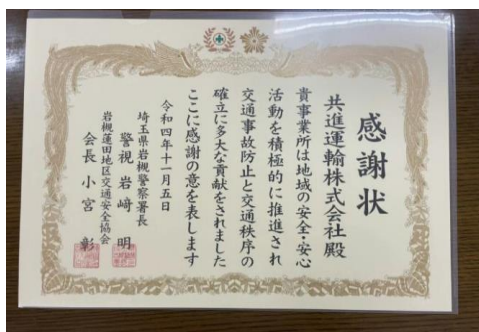 感謝状
共進運輸株式会社殿
貴事業所は地域の安全・安心
活動を積極的に推進され
交通事故防止と交通秩序の
確立に多大な貢献をされました
ここに感謝の意を表します
令和四年十一月五日
埼玉県岩槻警察署長
警視 岩﨑 明
岩槻蓮田地区交通安全協会
会長 小宮 彰